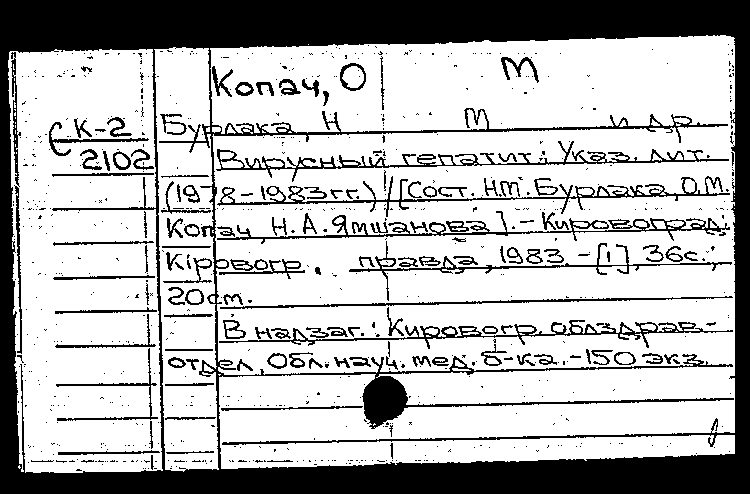 Копач, О М
К-2
2102
Бурлака, Н М и др.
Вирусный гепатит: Указ. лит.
(1978-1983гг.) / [Сост. Н.М. Бурлака, О.М.
Копач, Н.А. Ямшанова]. - Кировоград:
Кіровогр. правда, 1983. - [1], 36с.;
20см.
В надзаг.: Кировогр. облздрав-
отдел, Обл. науч. мед. б-ка. - 150 экз.